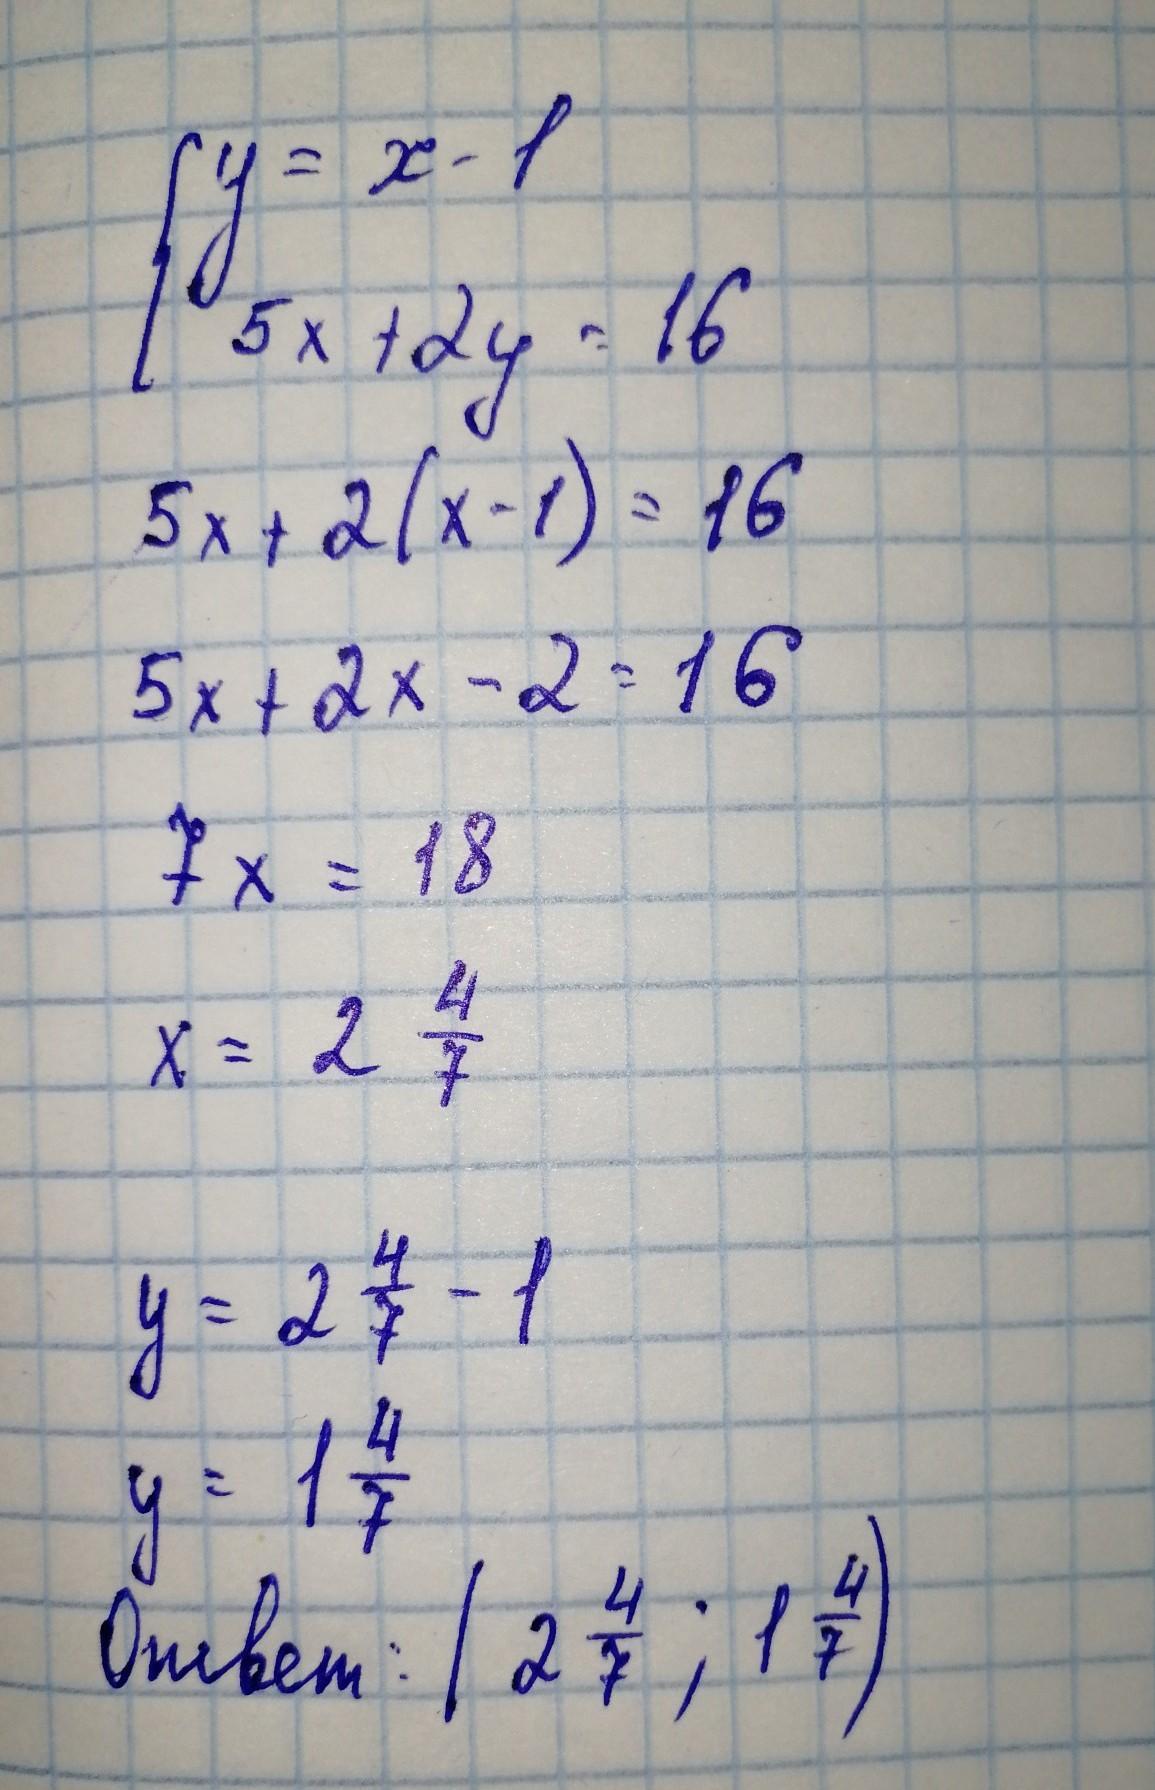 { y = x - 1
5x + 2y = 16
5x + 2(x - 1) = 16
5x + 2x - 2 = 16
7x = 18
x = 2 4/7
y = 2 4/7 - 1
y = 1 4/7
Ответ: (2 4/7 ; 1 4/7)